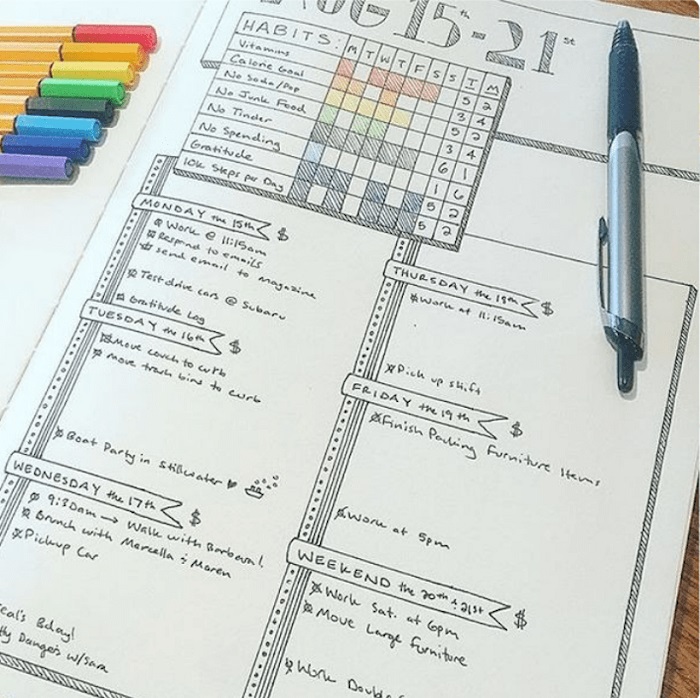 AUG 15th-21st
HABITS: M T W T F S S T M
Vitamins 5 2
Calorie Goal 3 4
No Soda/Pop 5 2
No Junk Food 3 4
No Tinder 6 1
No Spending 1 6
Gratitude 5 2
10k Steps per Day 5 2
MONDAY the 15th $
Work @ 11:15am
Respond to emails
send email to magazine
Test drive cars @ Subaru
Gratitude Log
TUESDAY the 16th $
Move couch to curb
Move trash bins to curb
Boat Party in Stillwater
WEDNESDAY the 17th $
9:30am → Walk with Barbara!
Brunch with Marcella & Maren
Pickup Car
eal's Bday!
Dangers w/ Sara
THURSDAY the 18th $
Work at 11:15am
Pick up shift
FRIDAY the 19th $
Finish Packing Furniture Items
Work at 5pm
WEEKEND the 20th & 21st $
Work Sat. at 6pm
Move Large Furniture
Work